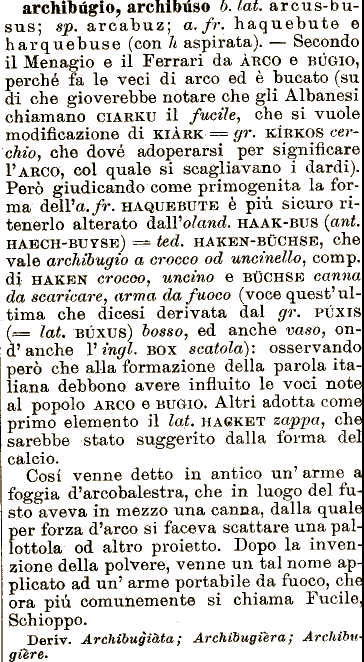 archibúgio, archibúso b. lat. arcus-bu-
sus; sp. arcabuz; a. fr. haquebute e
harquebuse (con h aspirata). — Secondo
il Menagio e il Ferrari da ÀRCO e BÚGIO,
perché fa le veci di arco ed è bucato (su
di che gioverebbe notare che gli Albanesi
chiamano CIARKU il fucile, che si vuole
modificazione di KIÀRK = gr. KÍRKOS cer-
chio, che dové adoperarsi per significare
l'ARCO, col quale si scagliavano i dardi).
Però giudicando come primogenita la for-
ma dell'a. fr. HAQUEBUTE è più sicuro ri-
tenerlo alterato dall'oland. HAAK-BUS (ant.
HAECH-BUYSE) = ted. HAKEN-BÜCHSE, che
vale archibugio a crocco od uncinello, comp.
di HAKEN crocco, uncino e BÜCHSE canna
da scaricare, arma da fuoco (voce quest'ul-
tima che dicesi derivata dal gr. PÚXIS
(= lat. BÚXUS) bosso, ed anche vaso, on-
d'anche l'ingl. BOX scatola): osservando
però che alla formazione della parola ita-
liana debbono avere influito le voci note
al popolo ARCO e BUGIO. Altri adotta come
primo elemento il lat. HACKET zappa, che
sarebbe stato suggerito dalla forma del
calcio.
Cosí venne detto in antico un'arme a
foggia d'arcobalestra, che in luogo del fu-
sto aveva in mezzo una canna, dalla quale
per forza d'arco si faceva scattare una pal-
lottola od altro proietto. Dopo la inven-
zione della polvere, venne un tal nome ap-
plicato ad un'arme portabile da fuoco, che
ora piú comunemente si chiama Fucile,
Schioppo.
Deriv. Archibugiàta; Archibugièra; Archibu-
gière.